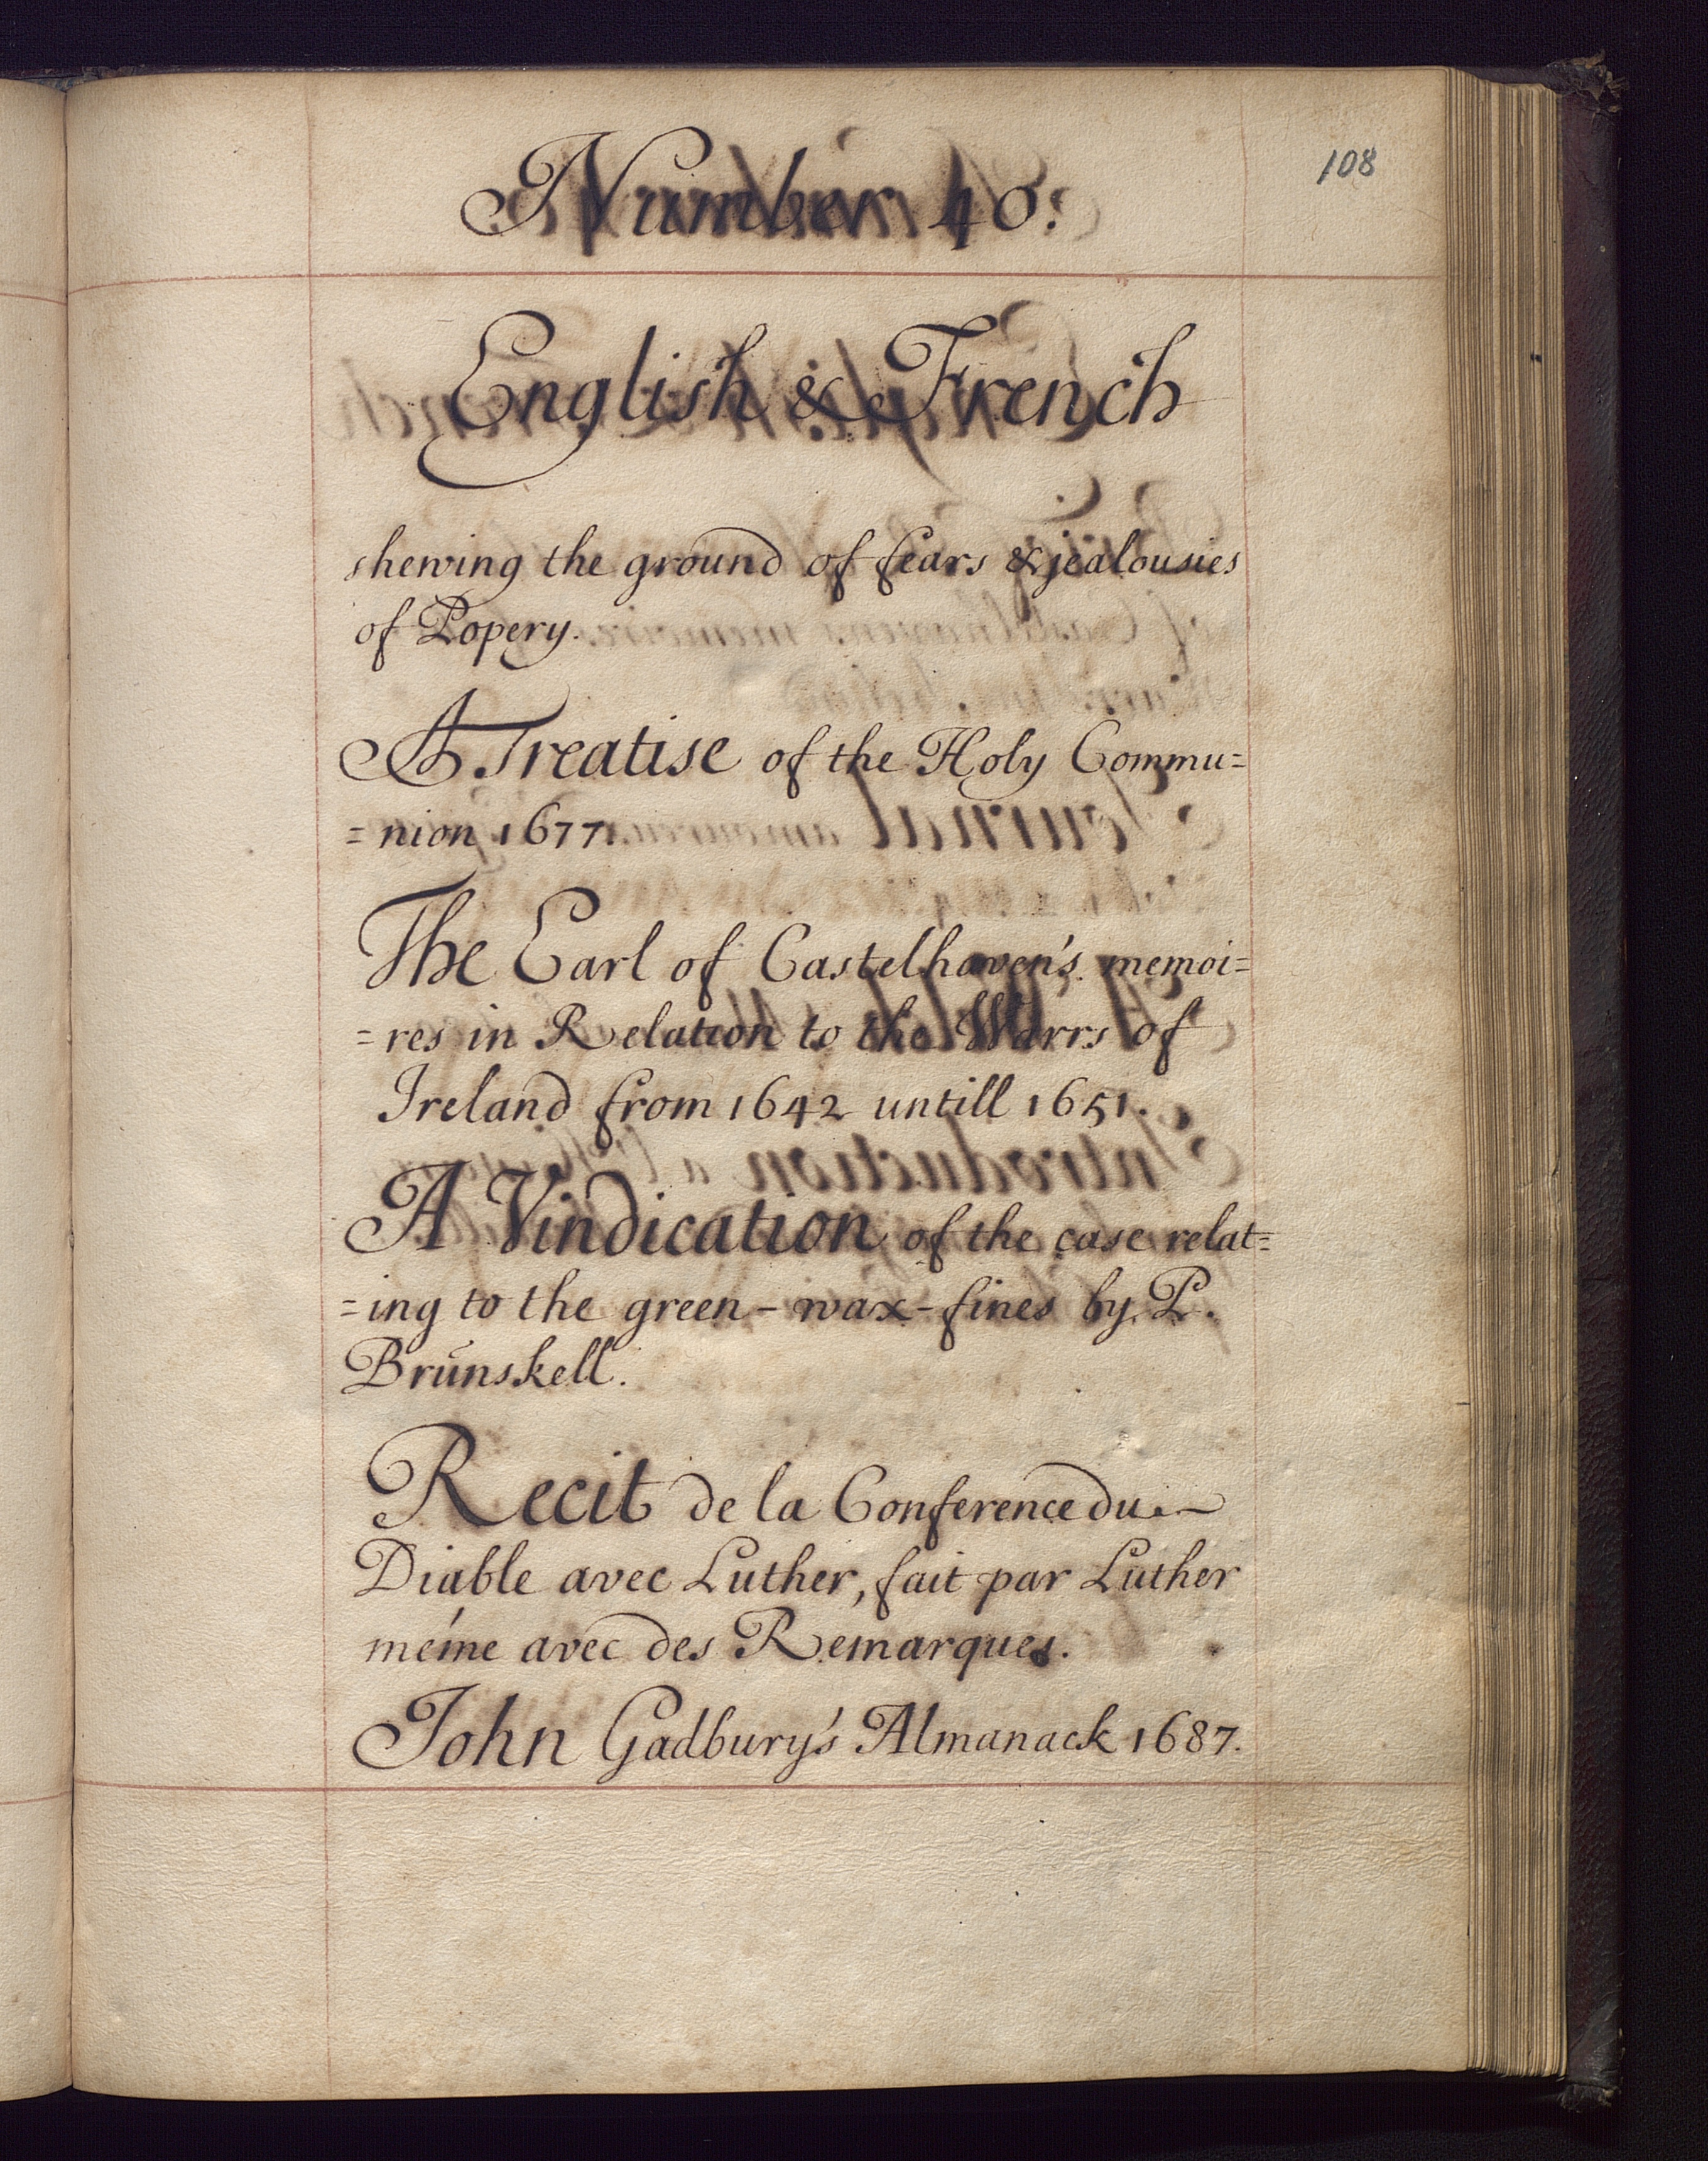 108
Number 40.
English & French
shewing the ground of fears & jealousies
of Popery.
A Treatise of the Holy Commu=
=nion 1677.
The Earl of Castelhaven's memoi=
=res in Relation to the Warrs of
Ireland from 1642 untill 1651.
A Vindication of the case relat=
=ing to the green-wax-fines by P.
Brunskell.
Recit de la Conference du
Diable avec Luther, fait par Luther
méme avec des Remarques.
John Gadbury's Almanack 1687.